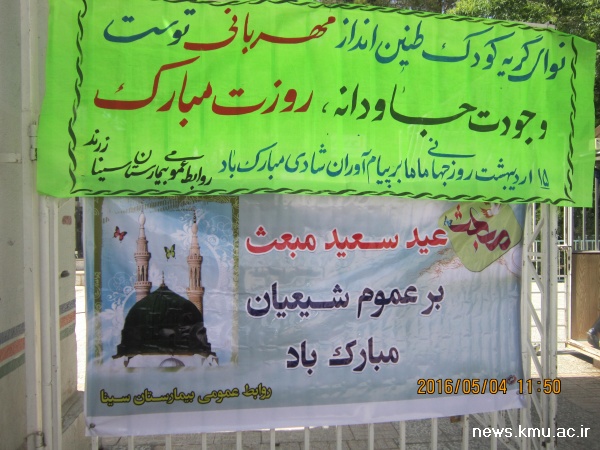 نوای گریه کودک طنین انداز مهربانی توست
وجودت جاودانه، روزت مبارک
۱۵ اردیبهشت روز جهانی ماما بر پیام آوران شادی مبارک باد
روابط عمومی بیمارستان سینا زرند
مبعث
عید سعید مبعث
بر عموم شیعیان
مبارک باد
روابط عمومی بیمارستان سینا
2016/05/04 11:50
news.kmu.ac.ir